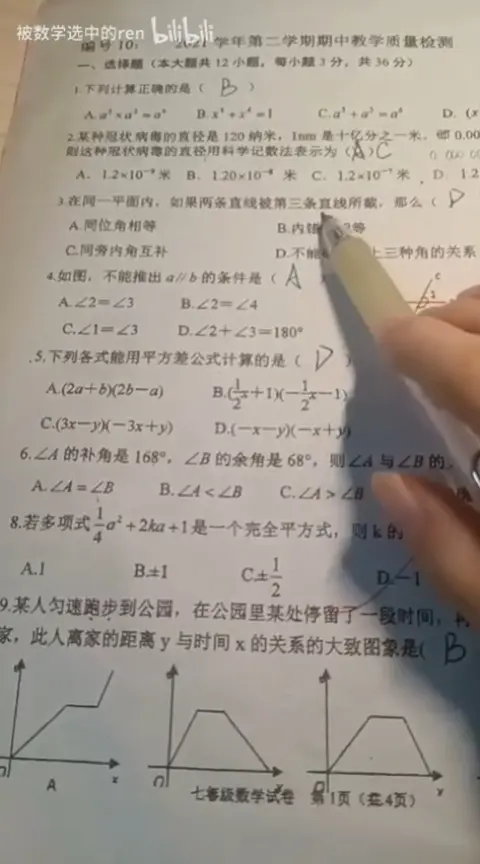 被数学选中的ren bilibili
编号10: 2021学年第二学期期中教学质量检测
一、选择题（本大题共12小题，每小题3分，共36分）
1.下列计算正确的是（ B ）
A.a²×a³=a⁶ B.x⁴÷x⁴=1 C.a³+a³=a⁶ D.(x
2.某种冠状病毒的直径是120纳米，1nm是十亿分之一米，即0.00
则这种冠状病毒的直径用科学记数法表示为（A）C
A. 1.2×10⁻⁹米 B. 1.20×10⁻⁸ 米 C. 1.2×10⁻⁷米 D. 1.2
3.在同一平面内，如果两条直线被第三条直线所截，那么（ D
A.同位角相等 B.内错 等
C.同旁内角互补 D.不能 上三种角的关系
4.如图，不能推出a//b的条件是（ A
A.∠2=∠3 B.∠2=∠4
C.∠1=∠3 D.∠2+∠3=180°
5.下列各式能用平方差公式计算的是（ D ）
A.(2a+b)(2b−a) B.(1/2x+1)(−1/2x−1)
C.(3x−y)(−3x+y) D.(−x−y)(−x+y)
6.∠A的补角是168°，∠B的余角是68°，则∠A与∠B的
A.∠A=∠B B.∠A<∠B C.∠A>∠B
8.若多项式1/4a²+2ka+1是一个完全平方式，则k的
A.1 B.±1 C.±1/2 D.−1
9.某人匀速跑步到公园，在公园里某处停留了一段时间，
家，此人离家的距离y与时间x的关系的大致图象是( B
A x O x O x
七年级数学试卷 第1页（共4页）